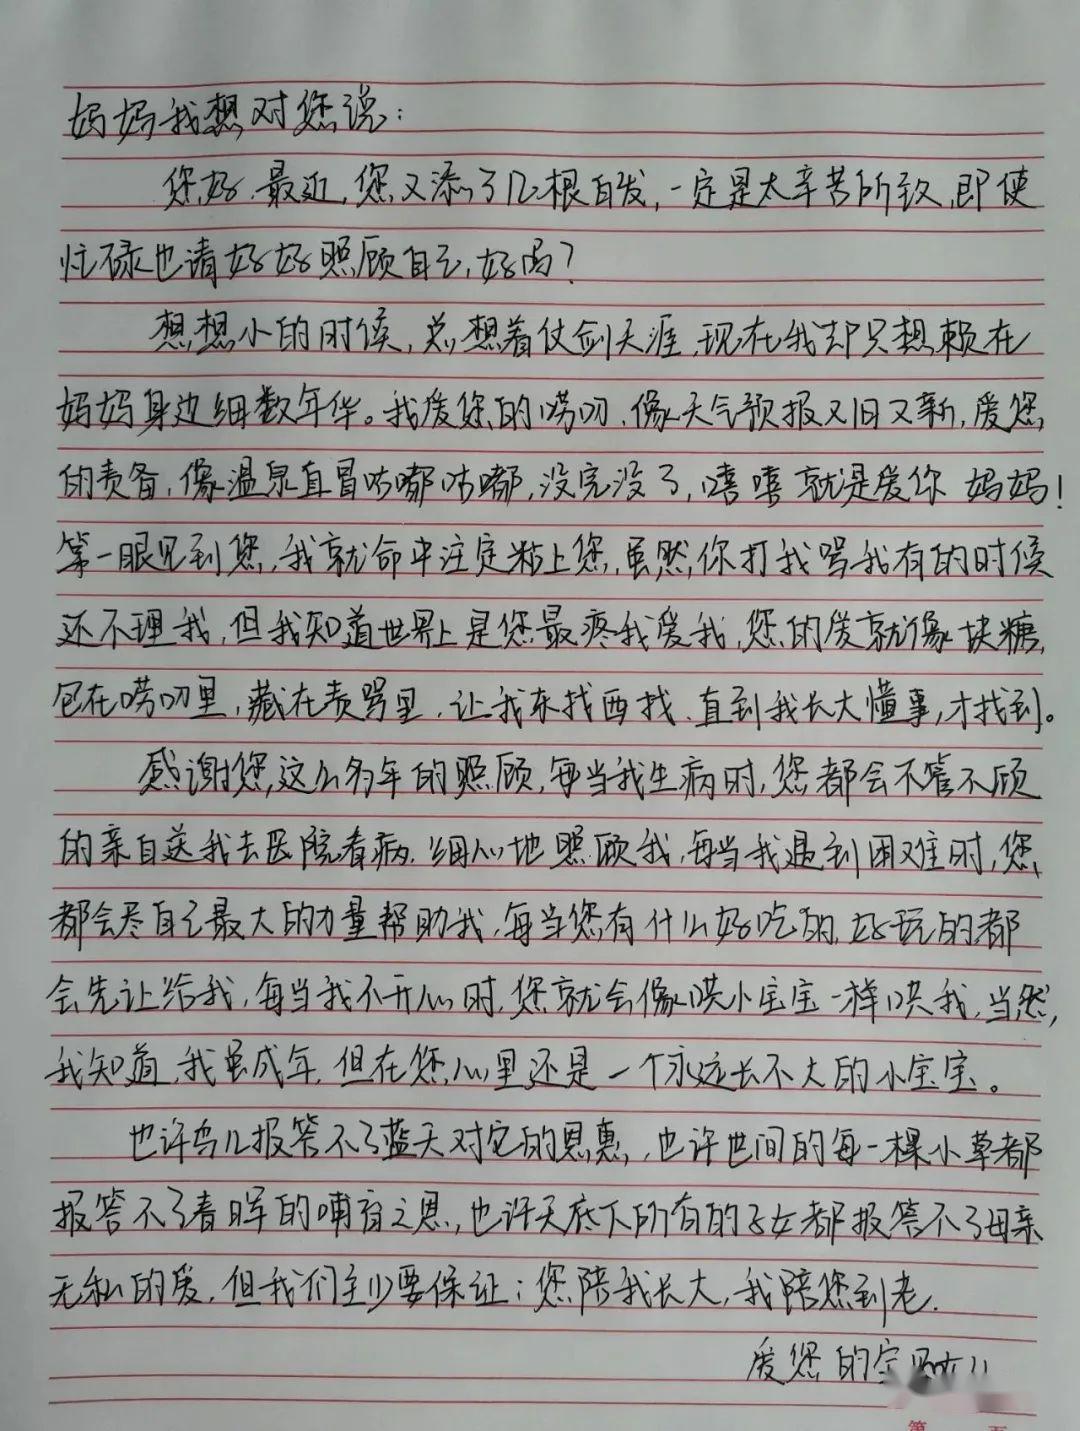 妈妈我想对您说：
您好，最近，您又添了几根白发，一定是太辛苦所致，即使
忙碌也请好好照顾自己，好吗？
想想小的时候，总想着仗剑天涯，现在我却只想赖在
妈妈身边细数年华。我爱您的唠叨，像天气预报又旧又新，爱您
的责备，像温泉直冒咕嘟咕嘟，没完没了，嘻嘻就是爱你 妈妈！
第一眼见到您，我就命中注定粘上您，虽然，你打我骂我有的时候
还不理我，但我知道世界上是您最疼我爱我，您的爱就像块糖，
包在唠叨里，藏在责骂里，让我东找西找，直到我长大懂事，才找到。
感谢您，这么多年的照顾，每当我生病时，您都会不管不顾
的亲自送我去医院看病，细心地照顾我，每当我遇到困难时，您
都会尽自己最大的力量帮助我，每当您有什么好吃的，好玩的都
会先让给我，每当我不开心时，您就会像哄小宝宝一样哄我，当然，
我知道，我虽成年，但在您心里还是一个永远长不大的小宝宝。
也许鸟儿报答不了蓝天对它的恩惠，也许世间的每一棵小草都
报答不了春晖的哺育之恩，也许天底下所有的子女都报答不了母亲
无私的爱，但我们至少要保证：您陪我长大，我陪您到老．
爱您的宝贝女儿
第 页